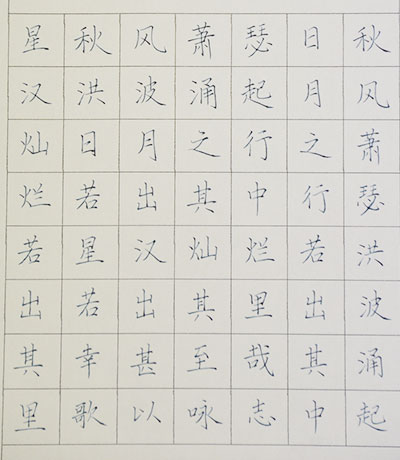 秋风萧瑟洪波涌起
日月之行若出其中
星汉灿烂若出其里
秋风萧瑟
洪波涌起
日月之行
若出其中
星汉灿烂
若出其里
幸甚至哉
歌以咏志